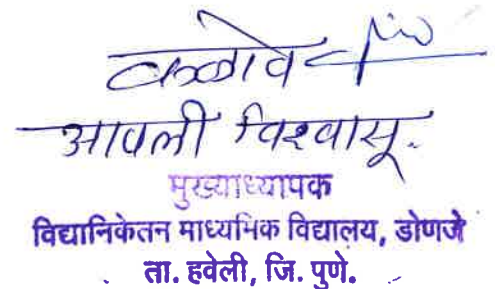 कळावे
आपली विश्वासू.
मुख्याध्यापक
विद्यानिकेतन माध्यमिक विद्यालय, डोणजे
ता. हवेली, जि. पुणे.